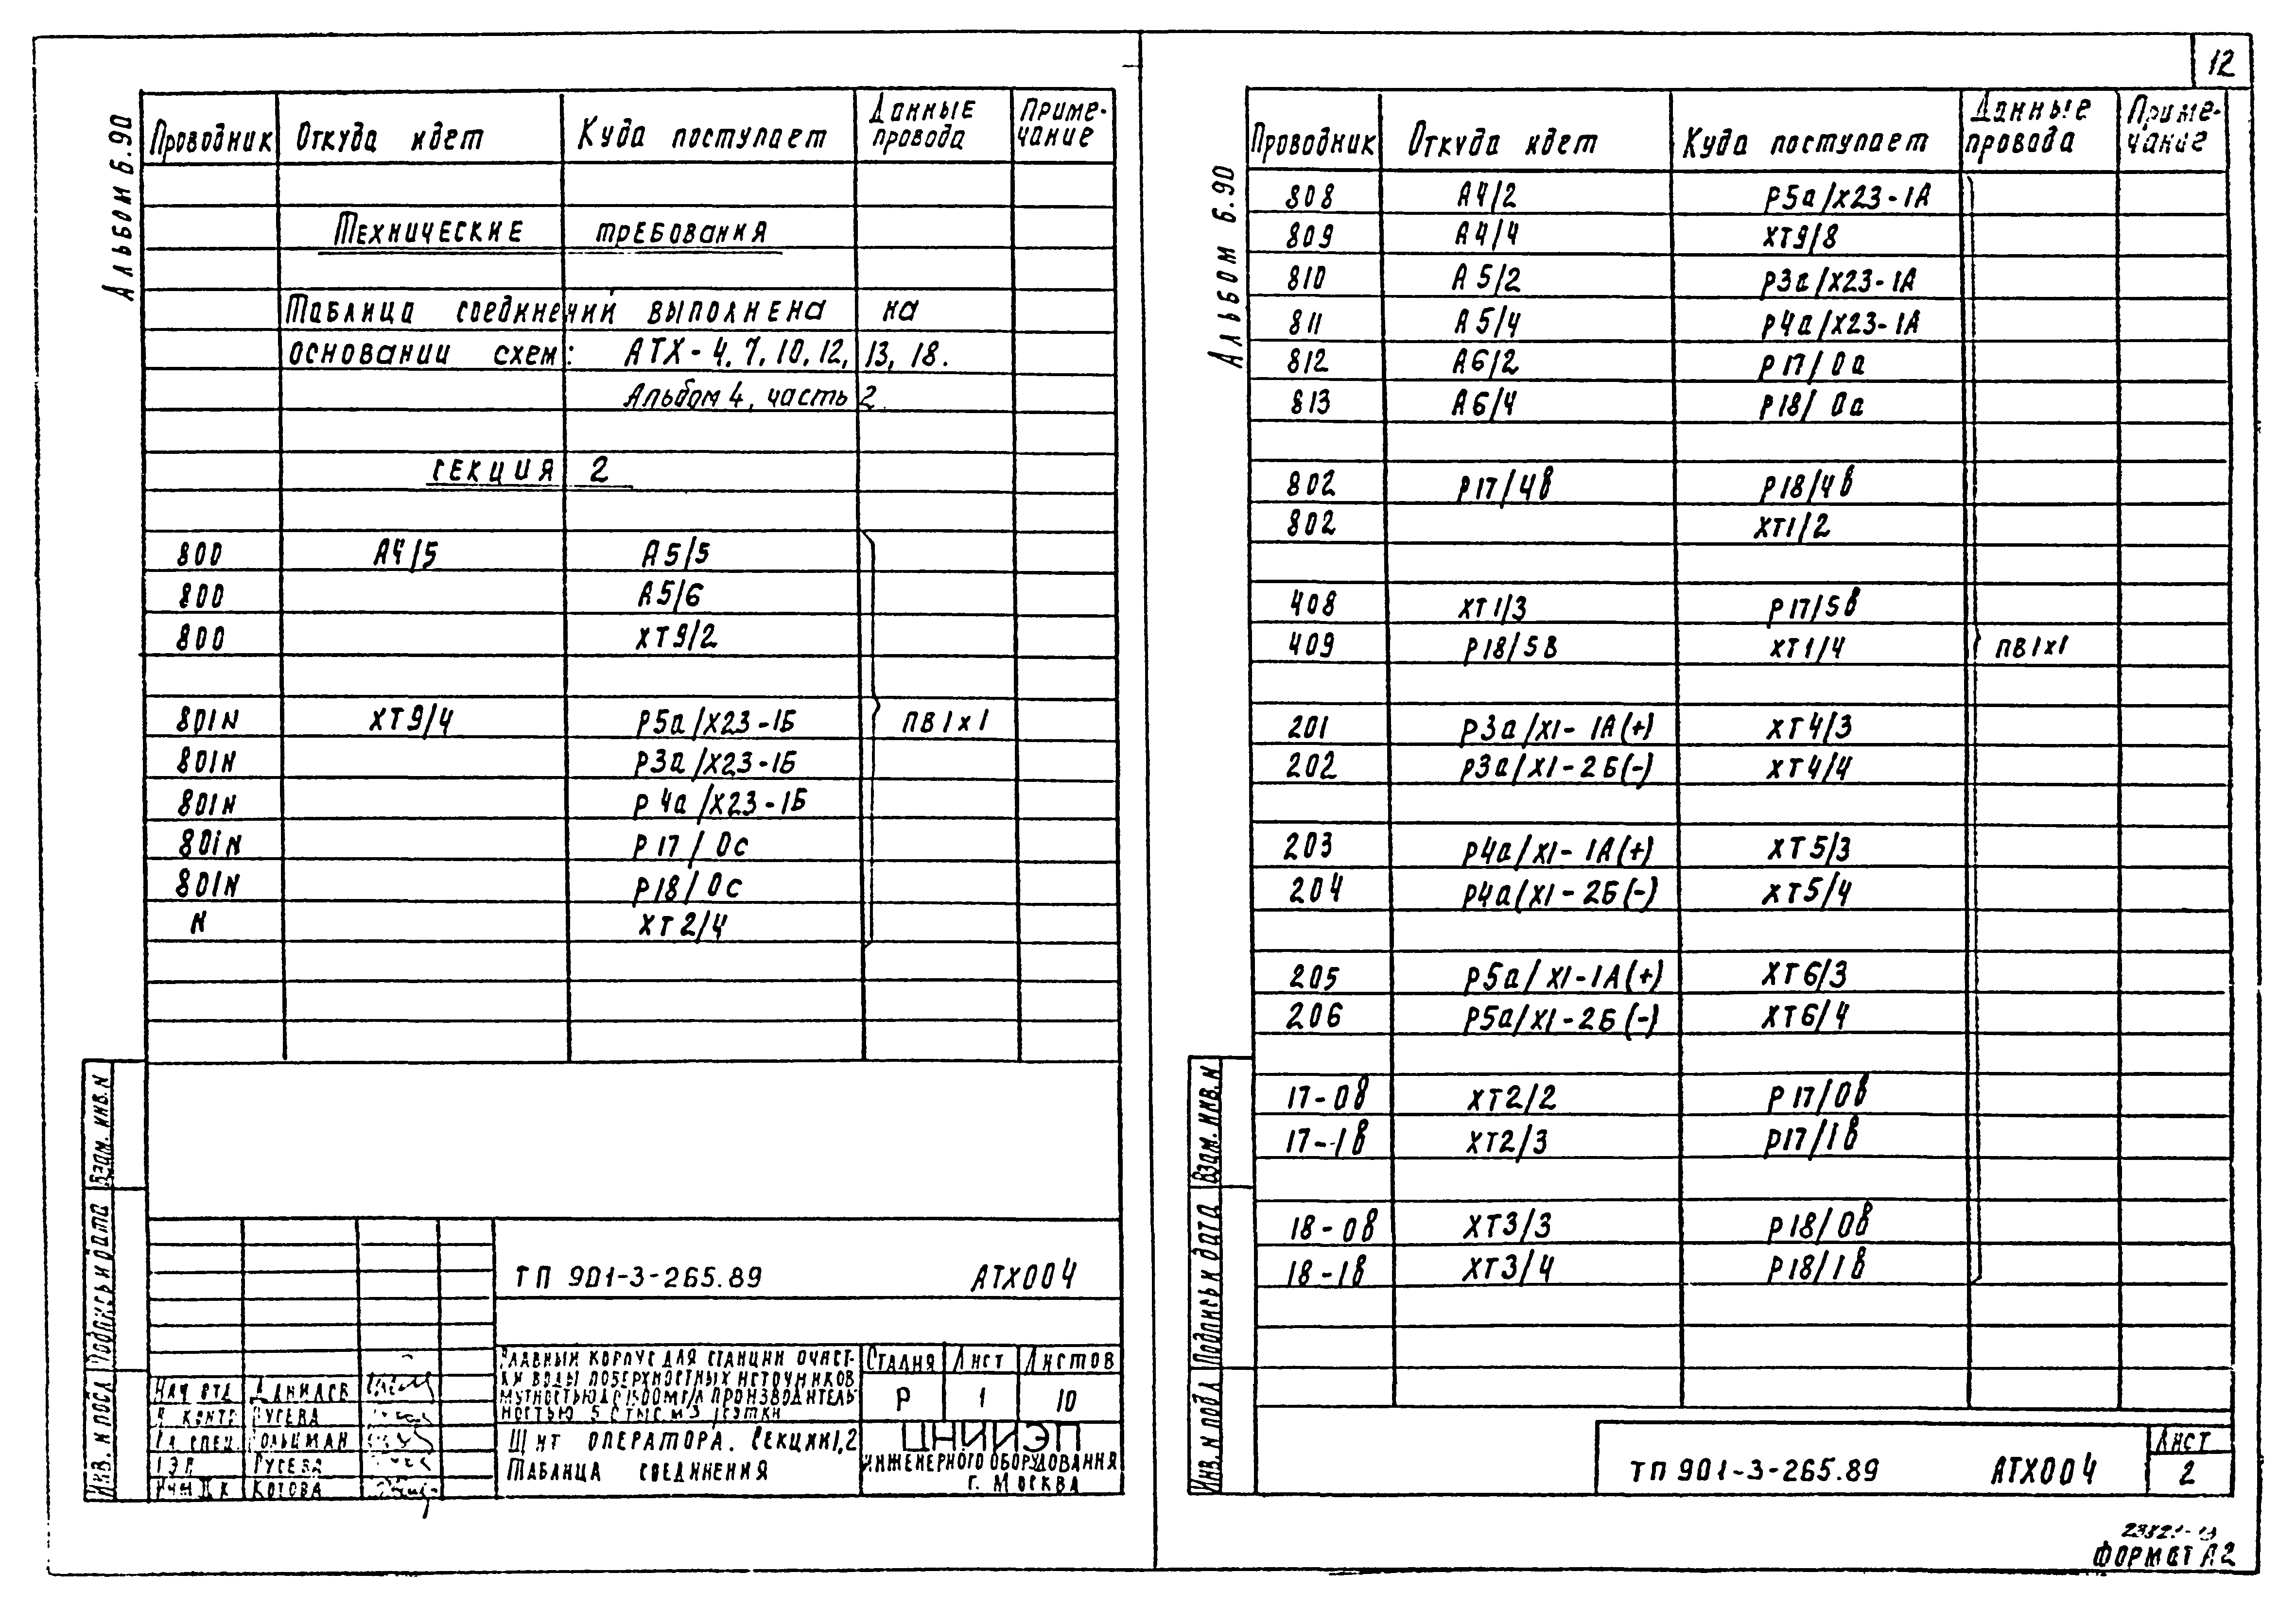 12
Альбом 6.90
Проводник Откуда идет Куда поступает Данные провода Приме-чание
Технические требования
Таблица соединений выполнена на
основании схем: АТХ-4, 7, 10, 12, 13, 18.
Альбом 4, часть 2
Секция 2
800 А4/5 А5/5
800 А5/6
800 ХТ9/2
801N ХТ9/4 Р5а/Х23-1Б ПВ1х1
801N Р3а/Х23-1Б
801N Р4а/Х23-1Б
801N Р17/0с
801N Р18/0с
N ХТ2/4
Взам. инв. N
Подпись и дата
Инв. N подл
ТП 901-3-265.89 АТХ004
Главный корпус для станции очист-
ки воды поверхностных источников
мутностью до 1500мг/л производитель-
ностью 5 тыс. м3/сутки
Стадия Лист Листов
Р 1 10
Нач отд Данилов
Н контр Гусева
Гл спец Гольцман
Гусева
Котова
Щит оператора. Секции 1,2
Таблица соединения
ЦНИИЭП
инженерного оборудования
г. Москва
Альбом 6.90
Проводник Откуда идет Куда поступает Данные провода Приме-чание
808 А4/2 Р5а/Х23-1А
809 А4/4 ХТ9/8
810 А5/2 Р3а/Х23-1А
811 А5/4 Р4а/Х23-1А
812 А6/2 Р17/0а
813 А6/4 Р18/0а
802 Р17/4в Р18/4в
802 ХТ1/2
408 ХТ1/3 Р17/5в
409 Р18/5в ХТ1/4 ПВ1х1
201 Р3а/Х1-1А(+) ХТ4/3
202 Р3а/Х1-2Б(-) ХТ4/4
203 Р4а/Х1-1А(+) ХТ5/3
204 Р4а/Х1-2Б(-) ХТ5/4
205 Р5а/Х1-1А(+) ХТ6/3
206 Р5а/Х1-2Б(-) ХТ6/4
17-0в ХТ2/2 Р17/0в
17-1в ХТ2/3 Р17/1в
18-0в ХТ3/3 Р18/0в
18-1в ХТ3/4 Р18/1в
Взам. инв. N
Подпись и дата
Инв. N подл
ТП 901-3-265.89 АТХ004
Лист
2
Формат А2